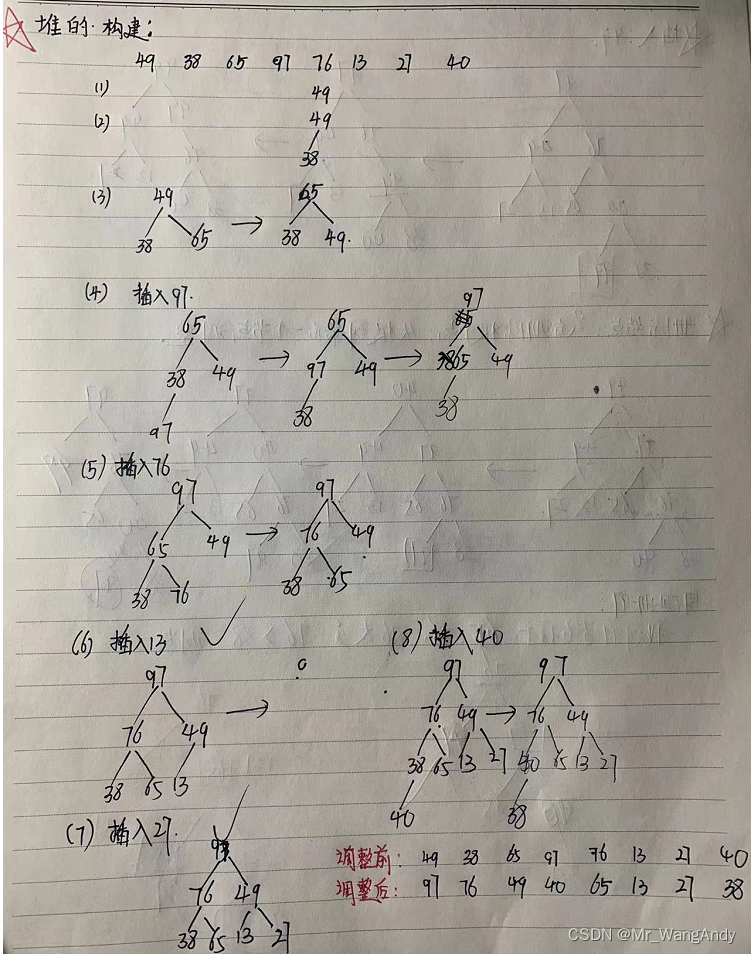 堆的·构建:
49 38 65 97 76 13 27 40
(1) 49
(2) 49
38
(3) 49 → 65
38 65 38 49.
(4) 插入97.
65 → 65 → 97
38 49 97 49 65 49
97 38 38
(5) 插入76
97 → 97
65 49 76 49
38 76 38 65
(6) 插入13
97 →
76 49
38 65 13
(7) 插入27.
97
76 49
38 65 13 27
(8) 插入40
97 → 97
76 49 76 49
38 65 13 27 40 65 13 27
40 38
调整前: 49 38 65 97 76 13 27 40
调整后: 97 76 49 40 65 13 27 38
CSDN @Mr_WangAndy